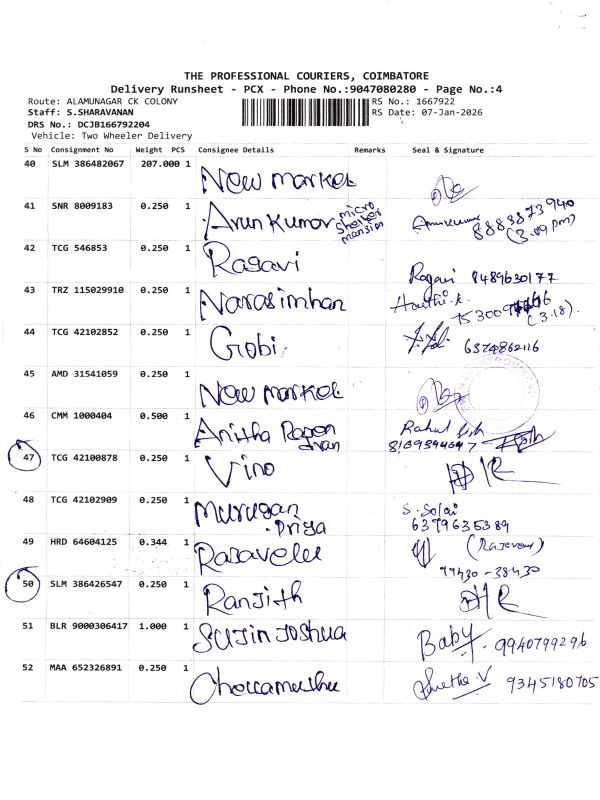 THE PROFESSIONAL COURIERS, COIMBATORE
Delivery Runsheet - PCX - Phone No.:9047080280 - Page No.:4
Route: ALAMUNAGAR CK COLONY RS No.: 1667922
Staff: S.SHARAVANAN RS Date: 07-Jan-2026
DRS No.: DCJB166792204
Vehicle: Two Wheeler Delivery
S No Consignment No Weight PCS Consignee Details Remarks Seal & Signature
40 SLM 386482067 207.000 1 New market
41 SNR 8009183 0.250 1 Arun Kumar micro shelter mansion 8888873940 (3.09 pm)
42 TCG 546853 0.250 1 Ragavi Ragavi 8489630177
43 TRZ 115029910 0.250 1 Narasimhan (3.18)
44 TCG 42102852 0.250 1 Gobi 6374862116
45 AMD 31541059 0.250 1 New market
46 CMM 1000404 0.500 1 Anitha
47 TCG 42100878 0.250 1 Vino
48 TCG 42102909 0.250 1 Murugan Priya 6379635389
49 HRD 64604125 0.344 1 Rasavelu 99430-38430
50 SLM 386426547 0.250 1 Ranjith
51 BLR 9000306417 1.000 1 Sujin Joshua Baby 9940799296
52 MAA 652326891 0.250 1 9345180705